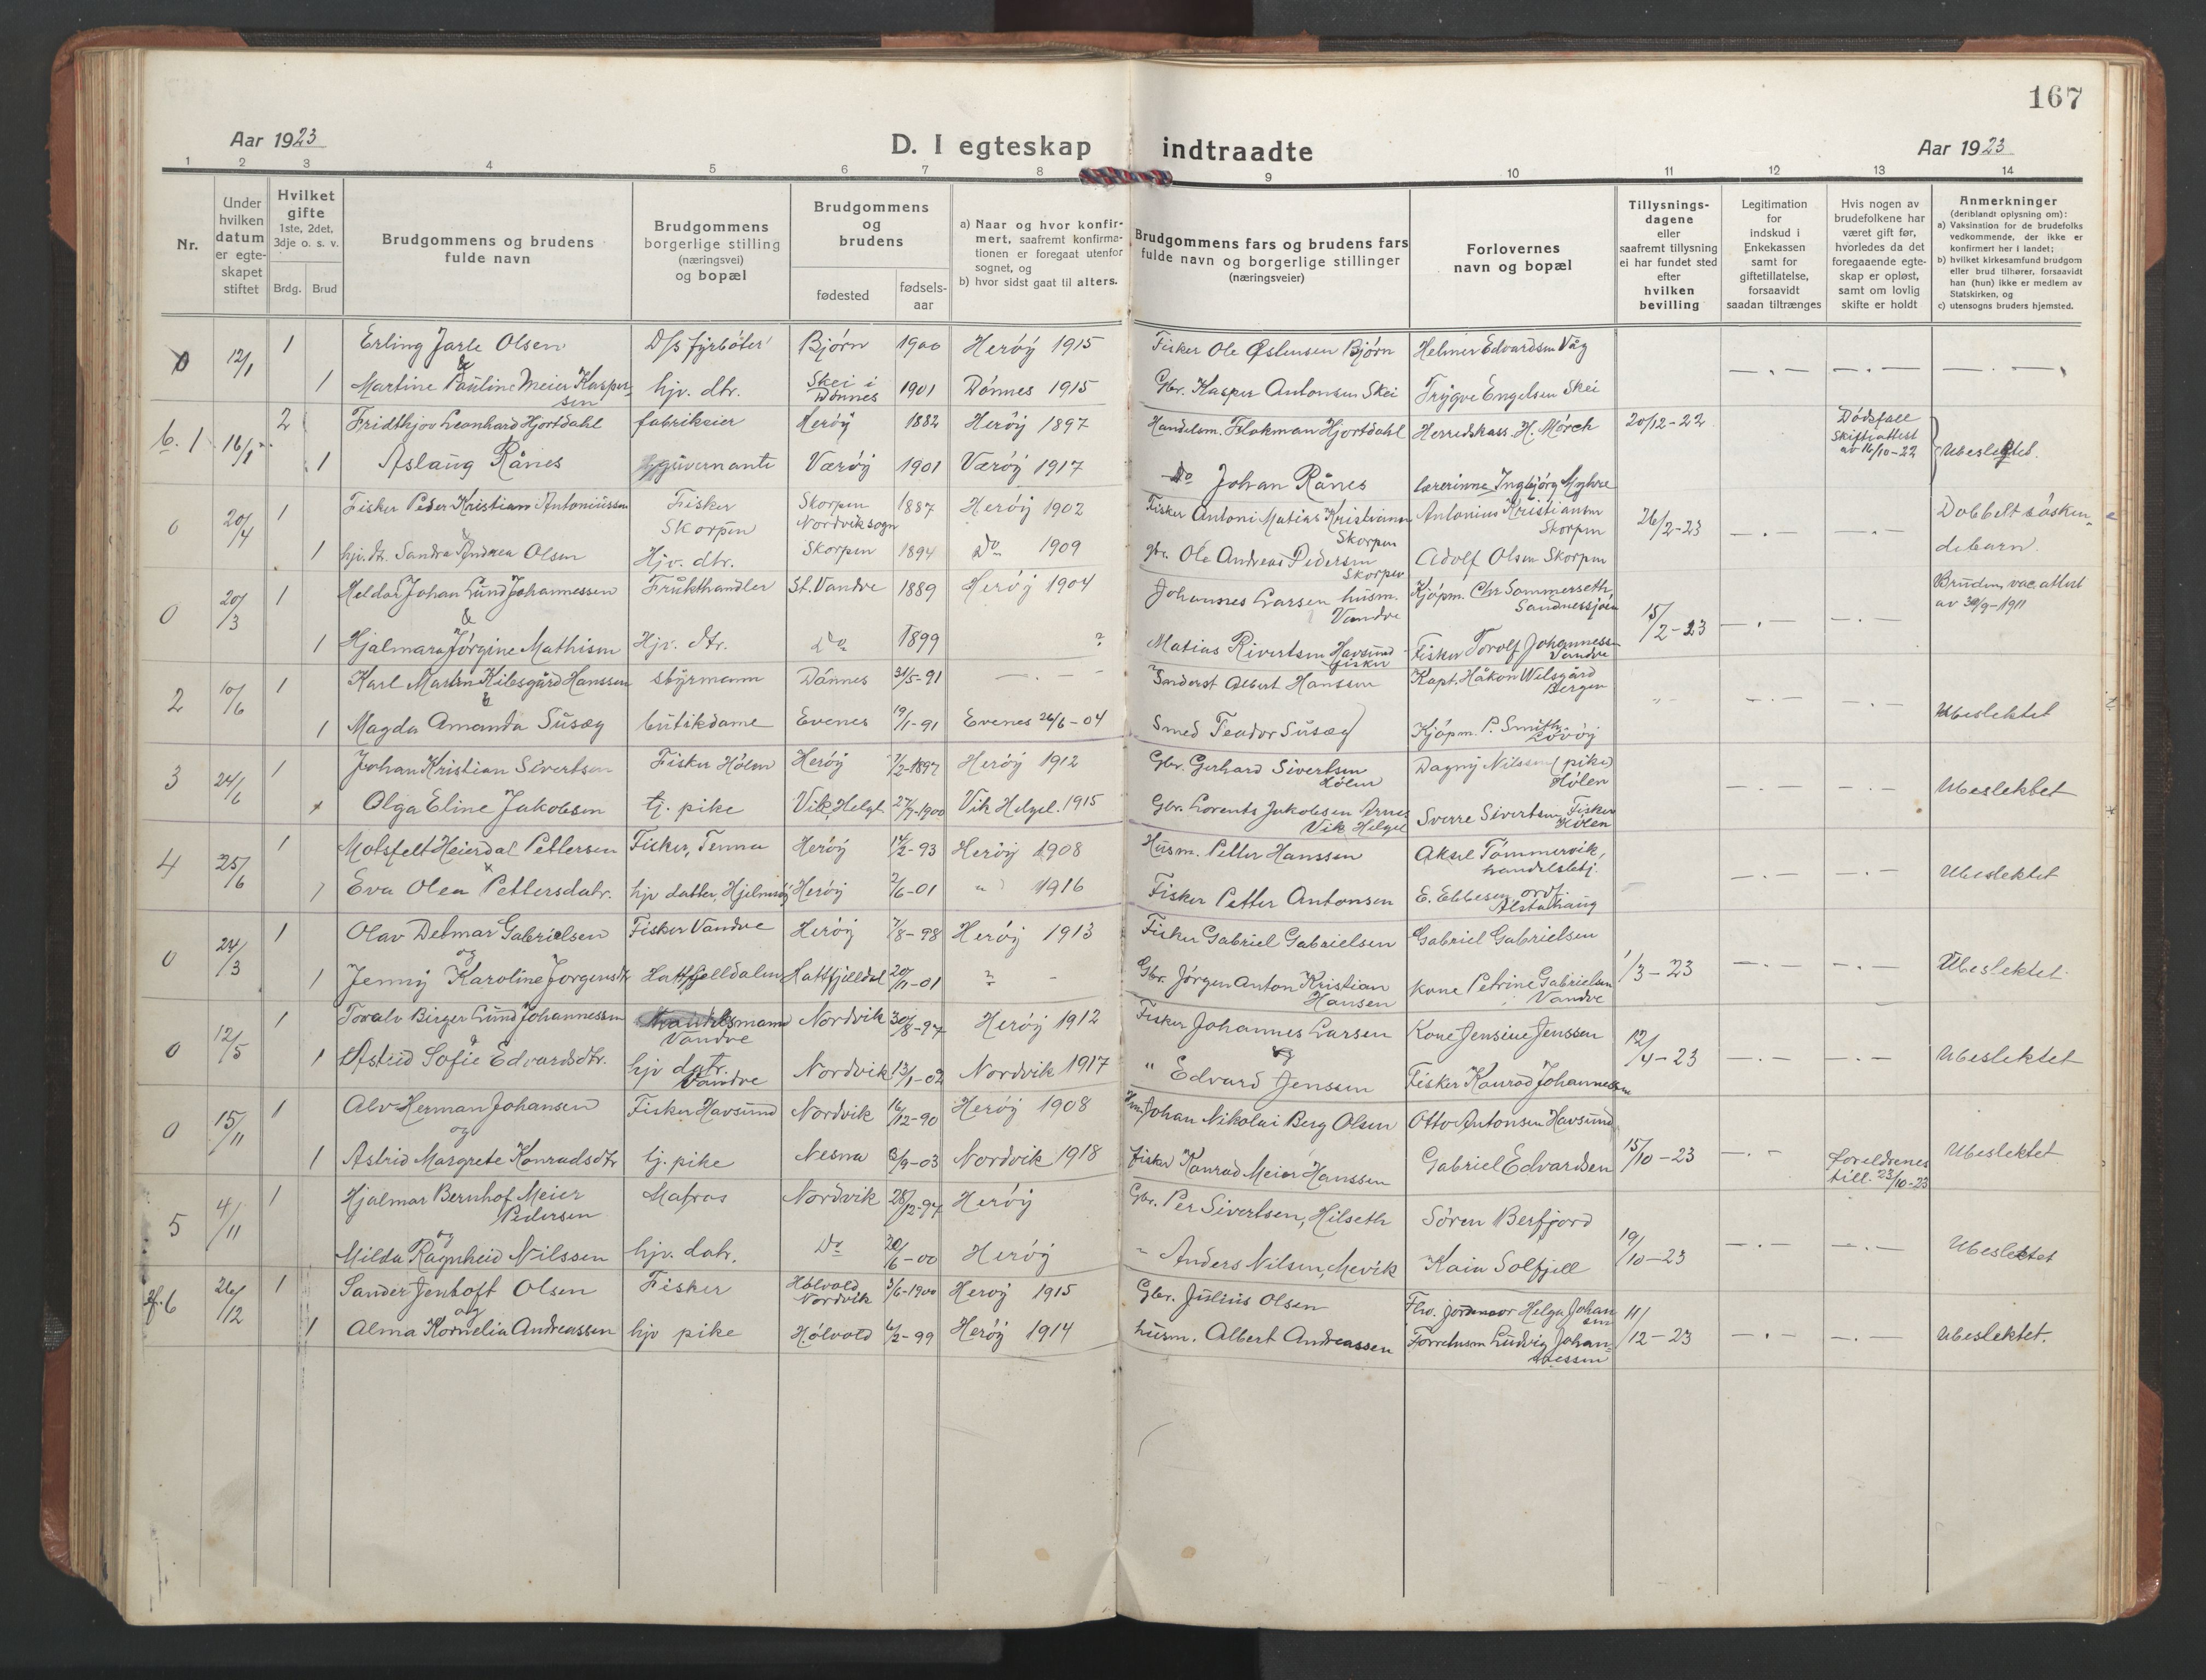 167
Aar 1923
D. I egteskap indtraadte
Aar 1923
1 2 3 4 5 6 7 8 9 10 11 12 13 14
Nr.
Under
hvilken
datum
er egte-
skapet
stiftet
Hvilket
gifte
1ste, 2det,
3dje o. s. v.
Brdg. Brud
Brudgommens og brudens
fulde navn
Brudgommens
borgerlige stilling
(næringsvei)
og bopæl
Brudgommens
og
brudens
fødested
fødsels-
aar
a) Naar og hvor konfir-
mert, saafremt konfirma-
tionen er foregaat utenfor
sognet, og
b) hvor sidst gaat til alters.
Brudgommens fars og brudens fars
fulde navn og borgerlige stillinger
(næringsveier)
Forlovernes
navn og bopæl
Tillysnings-
dagene
eller
saafremt tillysning
ei har fundet sted
efter
hvilken
bevilling
Legitimation
for
indskud i
Enkekassen
samt for
giftetillatelse,
forsaavidt
saadan tiltrænges
Hvis nogen av
brudefolkene har
været gift før,
hvorledes da det
foregaaende egte-
skap er opløst,
samt om lovlig
skifte er holdt
Anmerkninger
(deriblandt oplysning om):
a) Vaksination for de brudefolks
vedkommende, der ikke er
konfirmert her i landet;
b) hvilket kirkesamfund brudgom
eller brud tilhører, forsaavidt
han (hun) ikke er medlem av
Statskirken, og
c) utensogns bruders hjemsted.
0 12/1 1 Erling Jarle Olsen D/s fyrbøter Bjørn 1900 Herøy 1915 Fisker Ole Østensen Bjørn Helmer Edvardsen Våg
&
1 Martine Pauline Meier Kasper-
sen hjv. dtr. Skei i
Dønnes 1901 Dønnes 1915 Gbr. Kasper Antonsen Skei Trygve Engelsen Skei — . — — . — — . —
b. 1 16/1 2 Fridthjov Leonhard Hjortdahl fabrikeier Herøy 1882 Herøy 1897 Handelsm. Flokman Hjortdahl Herredskass. H. Mørch 20/12-22 Dødsfall
Skifteattest
av 16/10-22 Ubeslektet.
1 Aslaug Rånes guvernante Værøy 1901 Værøy 1917 Do Johan Rånes lærerinne Ingbjørg Myhre
0 20/4 1 Fisker Peder Kristian Antoniussen Fisker
Skorpen Skorpen
Nordviksogn 1887 Herøy 1902 Fisker Antoni Matias Kristiansen
Skorpen Antonius Kristiansen
Skorpen 26/2-23 — . — — . — Dobbelt søsken-
debarn.
&
1 hjv. dtr. Sandra Andrea Olsen Hjv. dtr. Skorpen 1894 Do 1909 gbr. Ole Andreas Pedersen
Skorpen Adolf Olsen Skorpen
0 20/3 1 Heldor Johan Lund Johannessen Frukthandler St. Vandve 1889 Herøy 1904 Johannes Larsen husm.
Vandve Kjøpm. Chr Sommerseth
Sandnessjøen 15/2-23 — . — — . — Bruden vac. attest
av 30/9-1911
&
1 Hjalmara Jørgine Mathisen Hjv. dtr. Do 1899 ? Matias Rivertsen Havsund
fisker Fisker Torolf Johannessen
Vandve
2 10/6 1 Karl Marten Kilesgård Hanssen styrmann Dønnes 31/5-91 — . — Sanderst Albert Hanssen Kapt. Håkon Wilsgård
Bergen — . — — . — Ubeslektet
&
1 Magda Amanda Susæg butikdame Evenes 19/1-91 Evenes 26/6-04 Smed Teodor Susæg Kjøpm. P. Smith
Løvøy
3 24/6 1 Johan Kristian Sivertsen Fisker Hølen Herøy 7/2-1897 Herøy 1912 Gbr. Gerhard Sivertsen
Hølen Dagny Nilssen (pike)
Hølen — . — — . — Ubeslektet
Olga Eline Jakobsen tj. pike Vik, Helgl. 27/7-1900 Vik Helgel. 1915 Gbr. Lorents Jakobsen Årnes
Vik Helgel Sverre Sivertsen Fisker
Hølen
4 25/6 1 Motsfelt Heierdal Pettersen Fisker, Tenna Herøy 14/2-93 Herøy 1908 Husm. Petter Hanssen Aksel Tømmervik,
handelsbetj. — . — — . — Ubeslektet
1 Eva Olea Pettersdatr. hjv datter, Hjelmsøy Herøy 2/6-01 " 1916 Fisker Petter Antonsen E. Ebbesen ordf.
Alstahaug
0 24/3 1 Olav Detmar Gabrielsen Fisker Vandve Herøy 7/8-98 Herøy 1913 Fisker Gabriel Gabrielsen Gabriel Gabrielsen 1/3-23 — . — — . — Ubeslektet
og
1 Jenny Karoline Jørgensdtr Hattfjelldalen Hattfjelldal 20/11-01 ? - Gbr. Jørgen Anton Kristian
Hansen kone Petrine Gabrielsen
Vandve
0 12/5 1 Toralv Birger Lund Johannessen handelsmann
Vandve Nordvik 30/8-97 Herøy 1912 Fisker Johannes Larsen Kone Jensine Jenssen 12/4-23 — . — — . — Ubeslektet
&
1 Astrid Sofie Edvardsdtr. hjv datr.
Vandve Nordvik 13/1-02 Nordvik 1917 " Edvard Jenssen Fisker Konrad Johannessen
0 15/11 1 Alv Herman Johansen Fisker Havsund Nordvik 16/12-90 Herøy 1908 Hm. Johan Nikolai Berg Olsen Otto Antonsen Havsund
og
1 Astrid Margrete Konradsdtr tj. pike Nesna 3/9-03 Nordvik 1918 fisker Konrad Meier Hanssen Gabriel Edvardsen 15/10-23 — . — foreldrenes
till. 23/10-23 Ubeslektet
5 4/11 1 Hjalmar Bernhof Meier
Pedersen Matros Nordvik 28/12-97 Herøy Gbr. Per Sivertsen, Hilseth Søren Berfjord 19/10-23 — . — — . — Ubeslektet
og
Milda Ragnheid Nilssen hjv. datr. Do 20/6-00 Herøy " Anders Nilsen, Mevik Kain Solfjell
6 26/12 1 Sander Jentoft Olsen Fisker Hølvold
Nordvik 3/6-1900 Herøy 1915 Gbr. Julius Olsen Frw. jordmor Helga Johan
sen 11/12-23 — . — — . — Ubeslektet.
og
1 Alma Kornelia Andreassen hjv pike Hølvold 6/2-99 Herøy 1914 husm. Albert Andreassen Forretnsm Ludvig Johan-
nessen